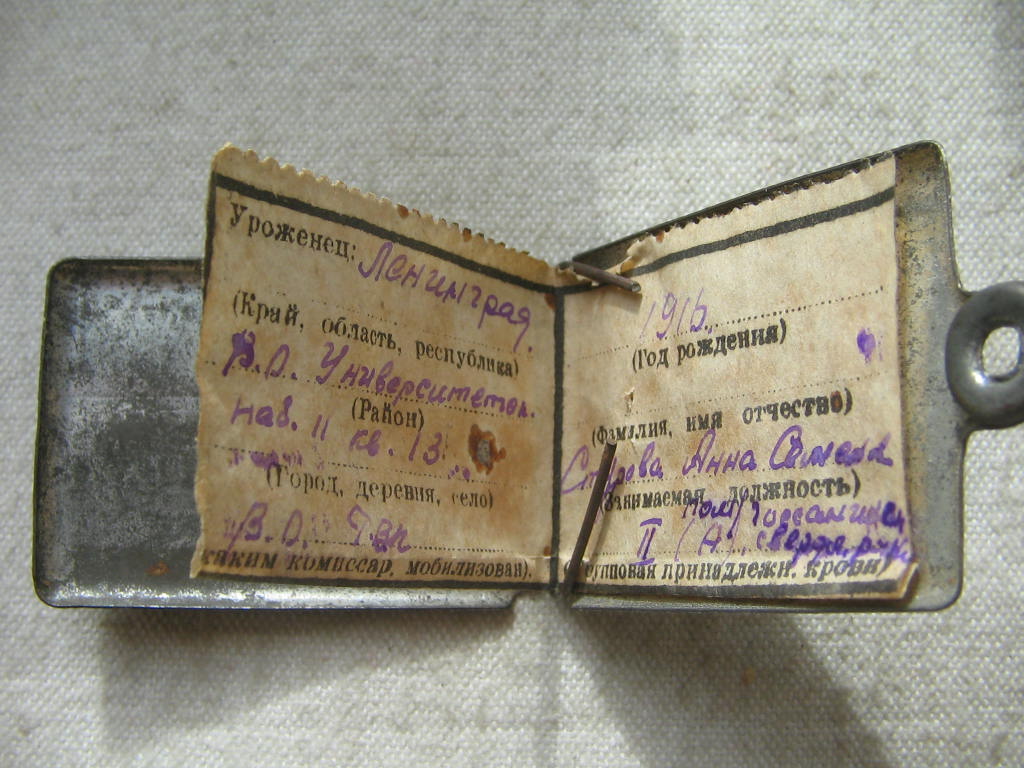 Уроженец: Ленинград.
(Край, область, республика)
В.О. Университетск.
(Район)
наб. 11 кв. 13
(Город, деревня, село)
В.О.
каким комиссар. мобилизован).
1916,
(Год рождения)
(Фамилия, имя отчество)
Анна
(Занимаемая должность)
II (А)
(Групповая принадлежн. крови)